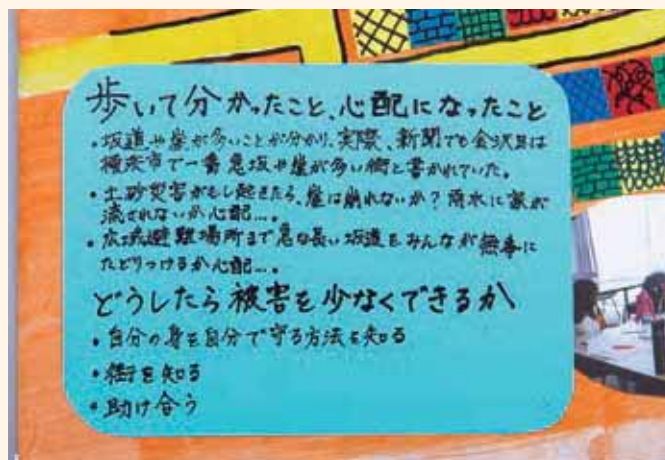 歩いて分かったこと、心配になったこと
・坂道や崖が多いことが分かり、実際、新聞でも金沢区は
横浜市で一番急坂や崖が多い街と書かれていた。
・土砂災害がもし起きたら、崖は崩れないか?雨水に家が
流されないか心配...。
・広域避難場所まで急な長い坂道をみんなが無事に
たどりつけるか心配...。
どうしたら被害を少なくできるか
・自分の身を自分で守る方法を知る
・街を知る
・助け合う